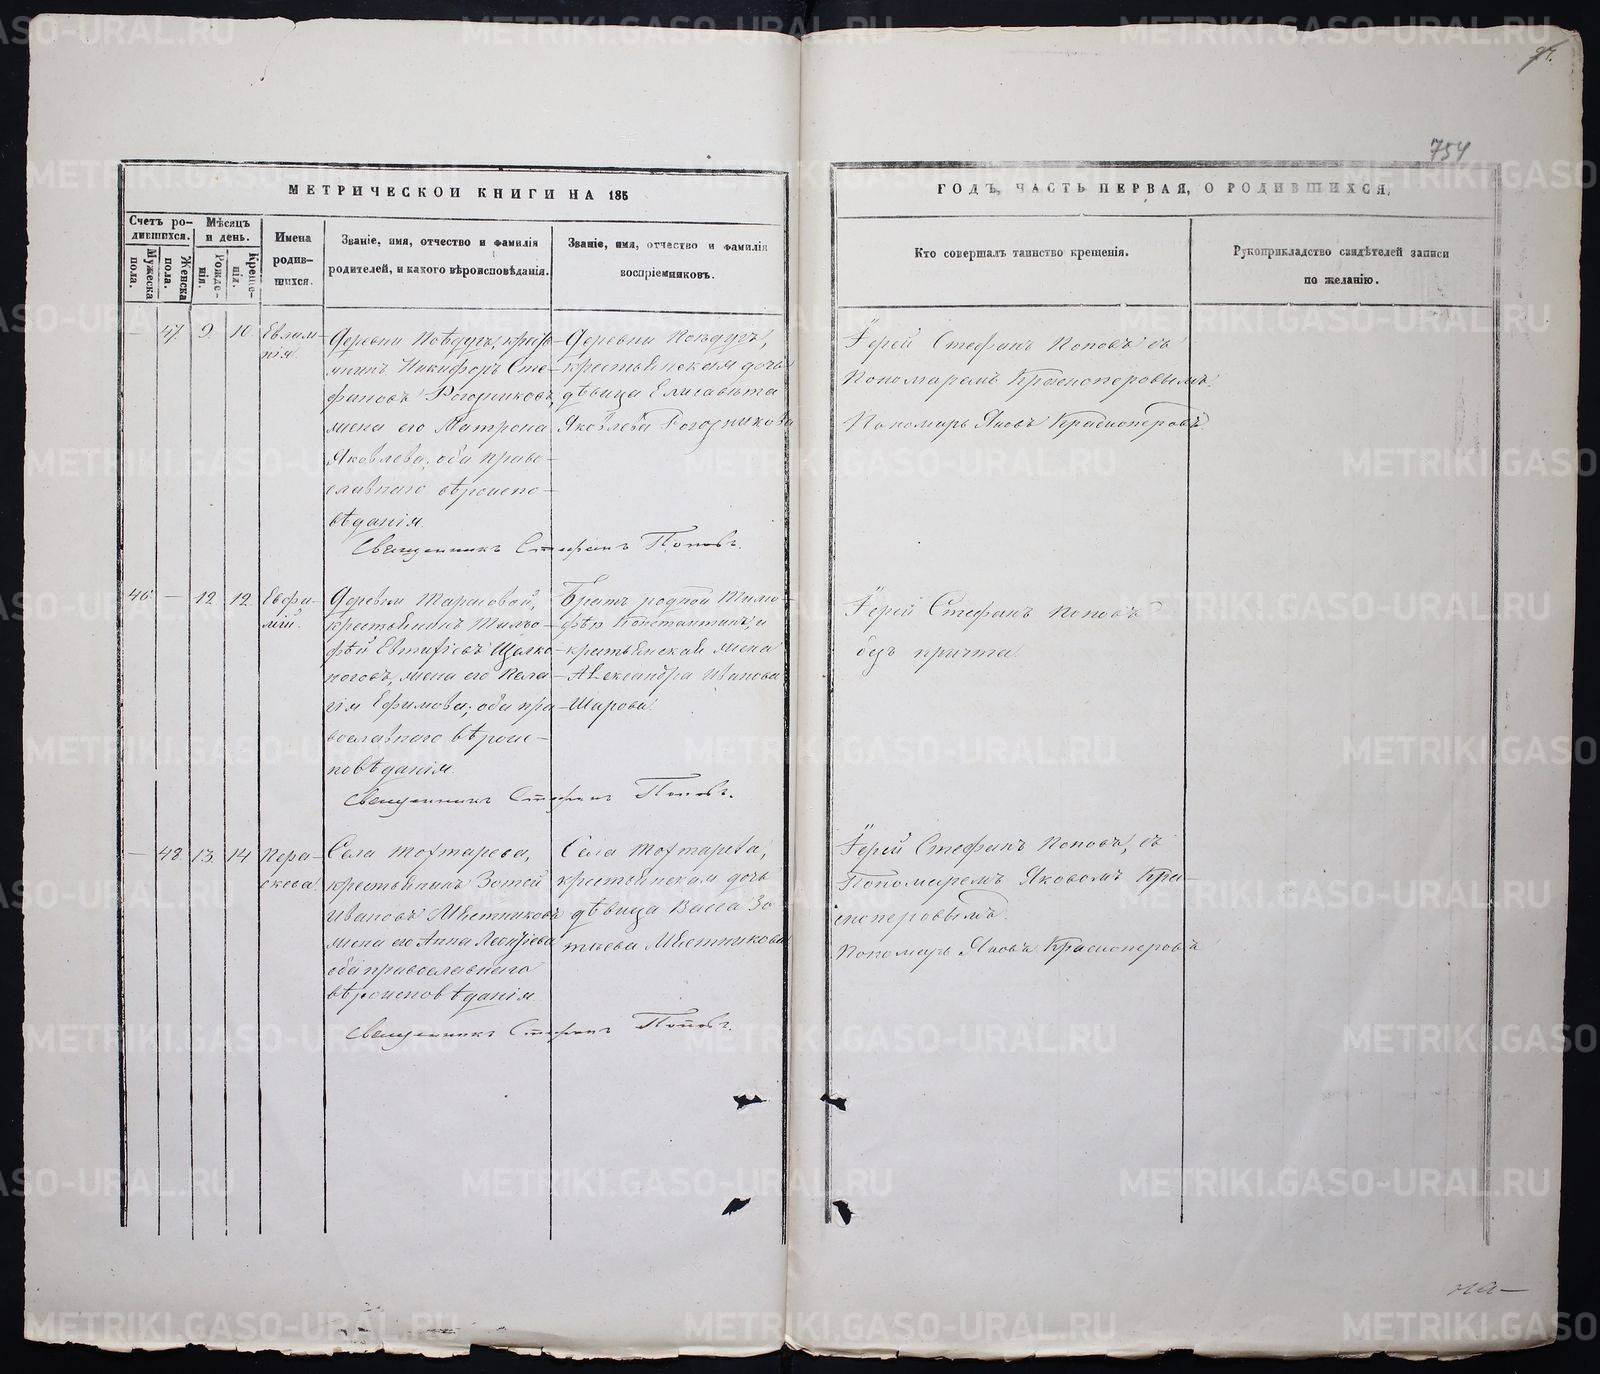 754
МЕТРИЧЕСКОИ КНИГИ НА 185
ГОДЪ, ЧАСТЬ ПЕРВАЯ, О РОДИВШИХСЯ,
Счетъ ро-
дившихся.
Мужеска
пола.
Женска
пола.
Мѣсяцъ
и день.
Рожде-
нія.
Креще-
нія.
Имена
родив-
шихся.
Званіе, имя, отчество и фамилія
родителей, и какого вѣроисповѣданія.
Званіе, имя, отчество и фамилія
воспріемниковъ.
Кто совершалъ таинство крещенія.
Рукоприкладство свидѣтелей записи
по желанію.
— 47. 9. 10.
Евлам-
пія.
Деревни
минъ Никифоръ Сте-
фановъ Рогозниковъ,
жена его Матрона
Яковлева, оба право-
славнаго вѣроиспо-
вѣданія.
Священникъ Стефанъ Поповъ.
Деревни
крестьянская дочь
дѣвица Елисавѣта
Яковлева Рогозникова
Іерей Стефанъ Поповъ съ
Пономаремъ Красноперовымъ.
Пономарь Яковъ Красноперовъ
46. — 12. 12.
Евфи-
мій.
Деревни Тарасовой,
крестьянинъ Тимо-
фѣй Щелко-
ноговъ, жена его Пела-
гія Ефимова; оба пра-
вославнаго вѣроис-
повѣданія.
Священникъ Стефанъ Поповъ.
Братъ родной Тимо-
фѣя Константинъ, и
крестьянская жена
Александра Иванова
Шарова.
Іерей Стефанъ Поповъ
безъ причта.
— 48. 13. 14.
Пара-
скева.
Села Тохтарева,
крестьянинъ Зотей
Ивановъ Мѣстниковъ
жена его Анна Леонтіева
оба православнаго
вѣроисповѣданія.
Священникъ Стефанъ Поповъ.
Села Тохтарева,
крестьянская дочь
дѣвица Васса Зо
тѣева Мѣстникова
Іерей Стефанъ Поповъ, съ
Пономаремъ Яковомъ Кра-
сноперовымъ.
Пономарь Яковъ Красноперовъ
на—
METRIKI.GASO-URAL.RU